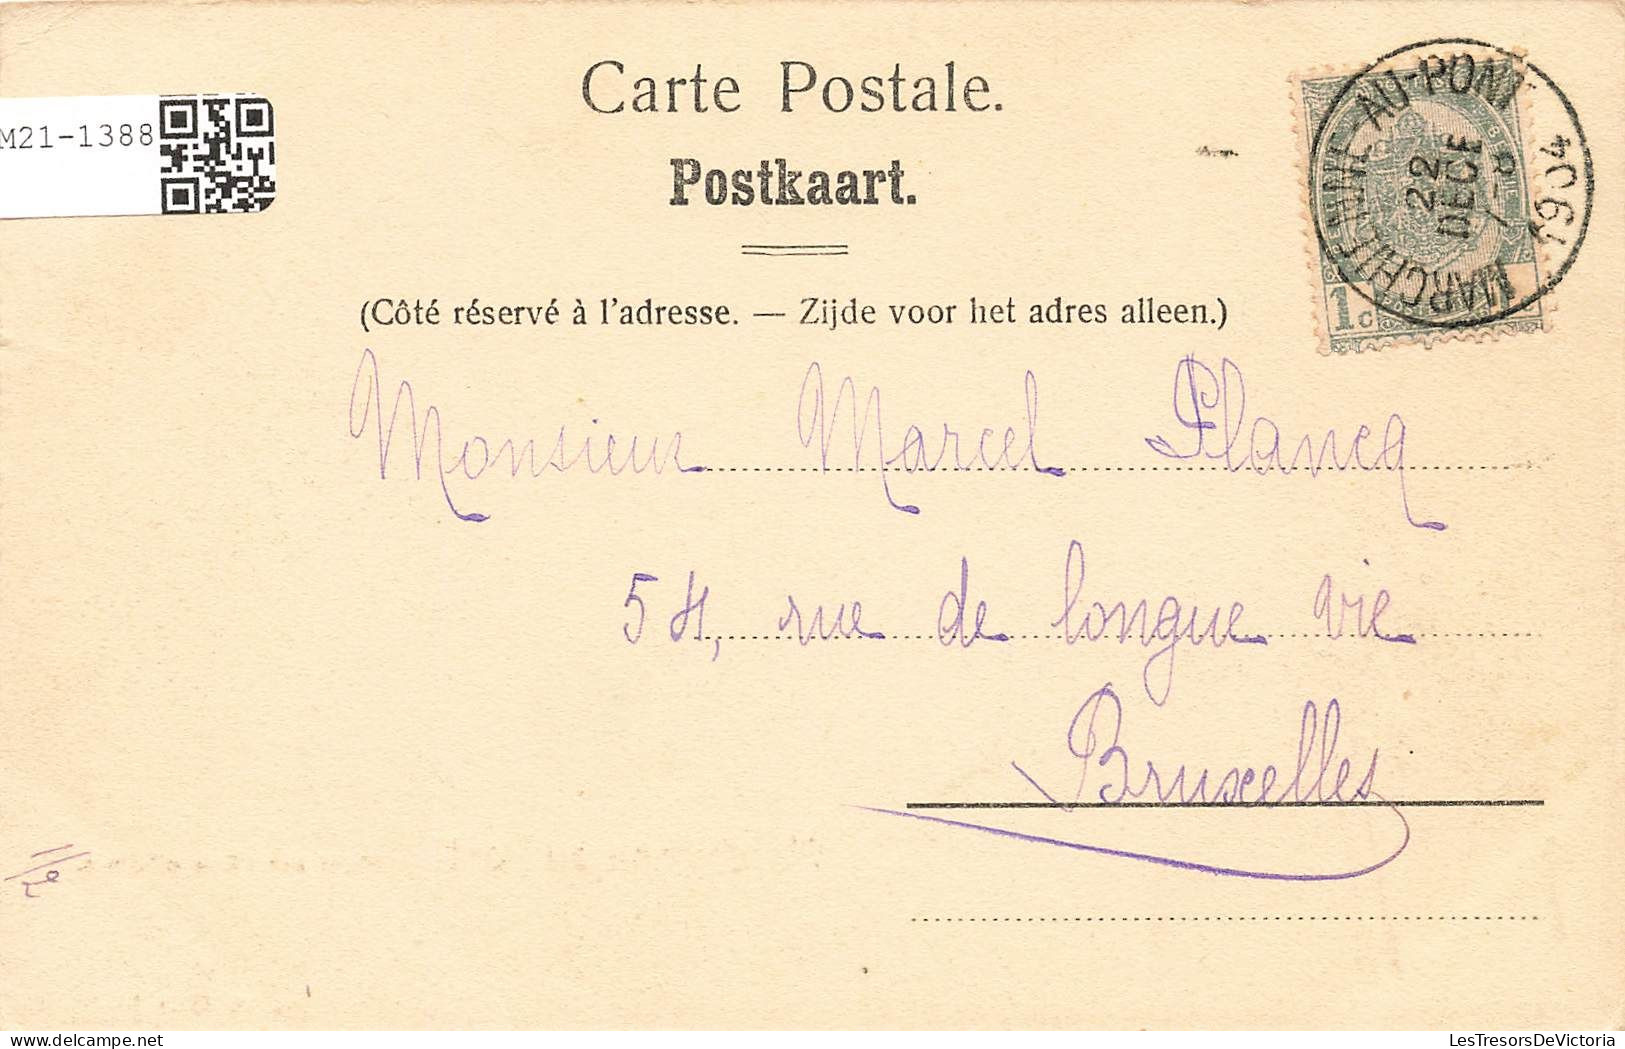 Carte Postale.
M21-1388
Postkaart.
MARCHIENNE-AU-PONT
22
DECE
7-8
1904
1c
(Côté réservé à l'adresse. — Zijde voor het adres alleen.)
Monsieur Marcel Plancq
54, rue de longue vie
Bruxelles
LesTresorsDeVictoria